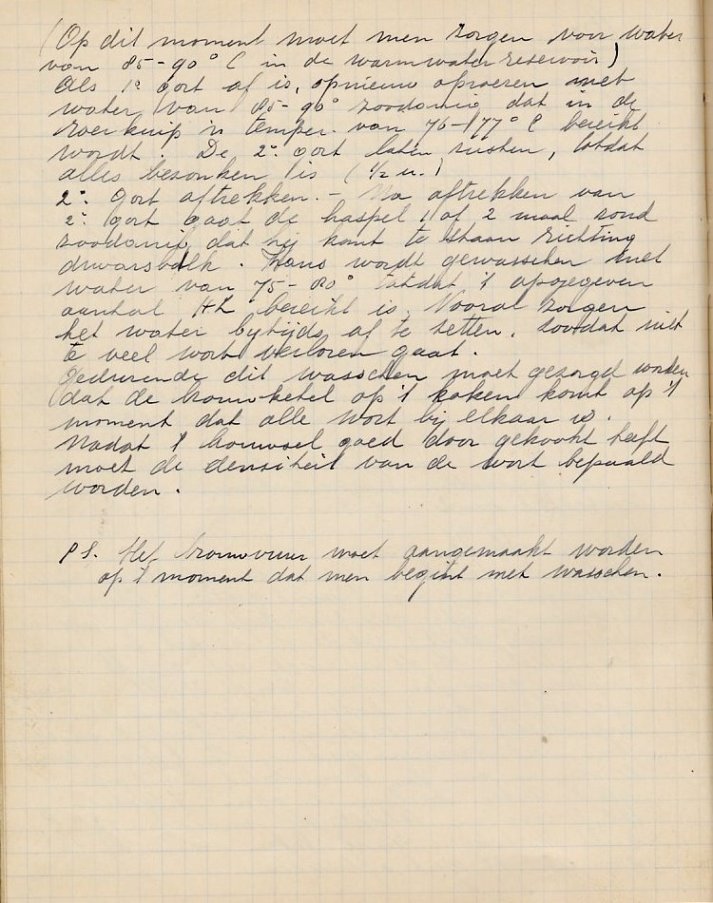 (Op dit moment moet men zorgen voor water
van 85-90° C in de warmwaterreservoir)
Als 1e gort af is, opnieuw oproeren met
water van 85-90° zoodanig dat in de
roerkuip 'n temper. van 76-77° C bereikt
wordt. De 2e gort laten rusten, totdat
alles bezonken is (1/2 u.)
2e gort aftrekken. - Na aftrekken van
2e gort gaat de haspel 1 of 2 maal rond
zoodanig dat hij komt te staan richting
dwarsbalk. Thans wordt gewasschen met
water van 75-80° totdat 't opgegeven
aantal HL bereikt is. Vooral zorgen
het water bijtijds af te zetten, zoodat niet
te veel wort verloren gaat.
Gedurende dit wasschen moet gezorgd worden
dat de brouwketel op 't koken komt op 't
moment dat alle wort bij elkaar is.
Nadat 't brouwsel goed door gekookt heeft
moet de densiteit van de wort bepaald
worden.
PS. Het brouwvuur moet aangemaakt worden
op 't moment dat men begint met wasschen.